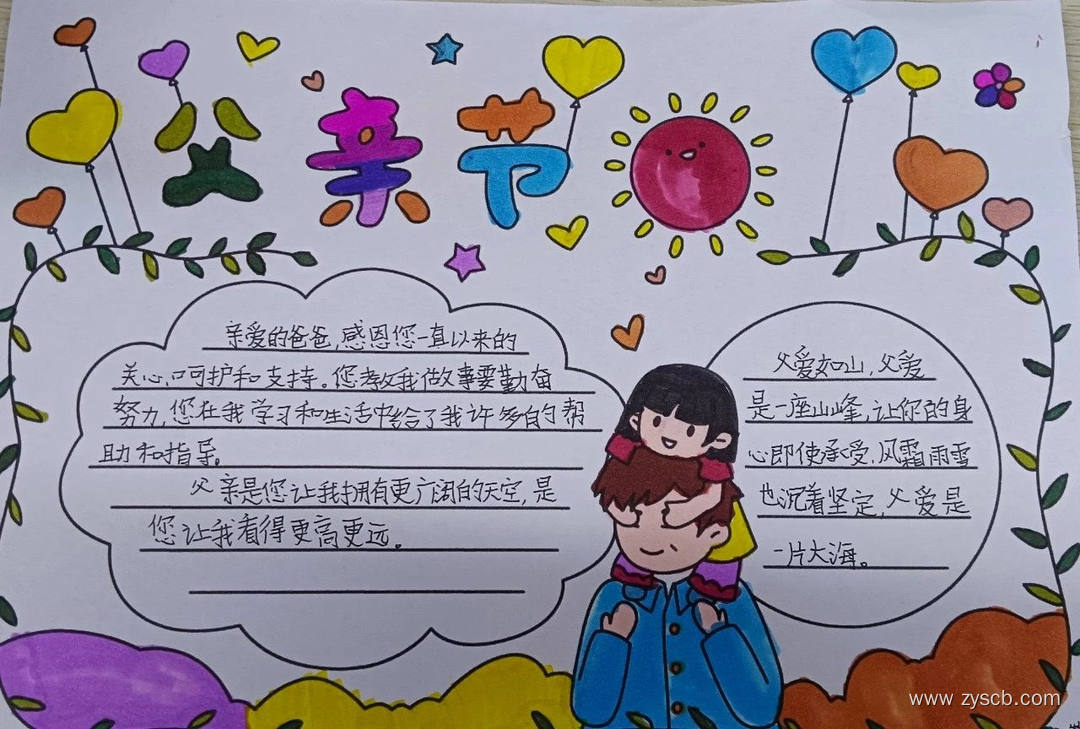 父亲节
亲爱的爸爸,感恩您一直以来的
关心,呵护和支持。您教我做事要勤奋
努力,您在我学习和生活中给了我许多的帮
助和指导。
父亲是您让我拥有更广阔的天空,是
您让我看得更高更远。
父爱如山,父爱
是一座山峰,让你的身
心即使承受,风霜雨雪
也沉着坚定,父爱是
一片大海。
www.zyscb.com